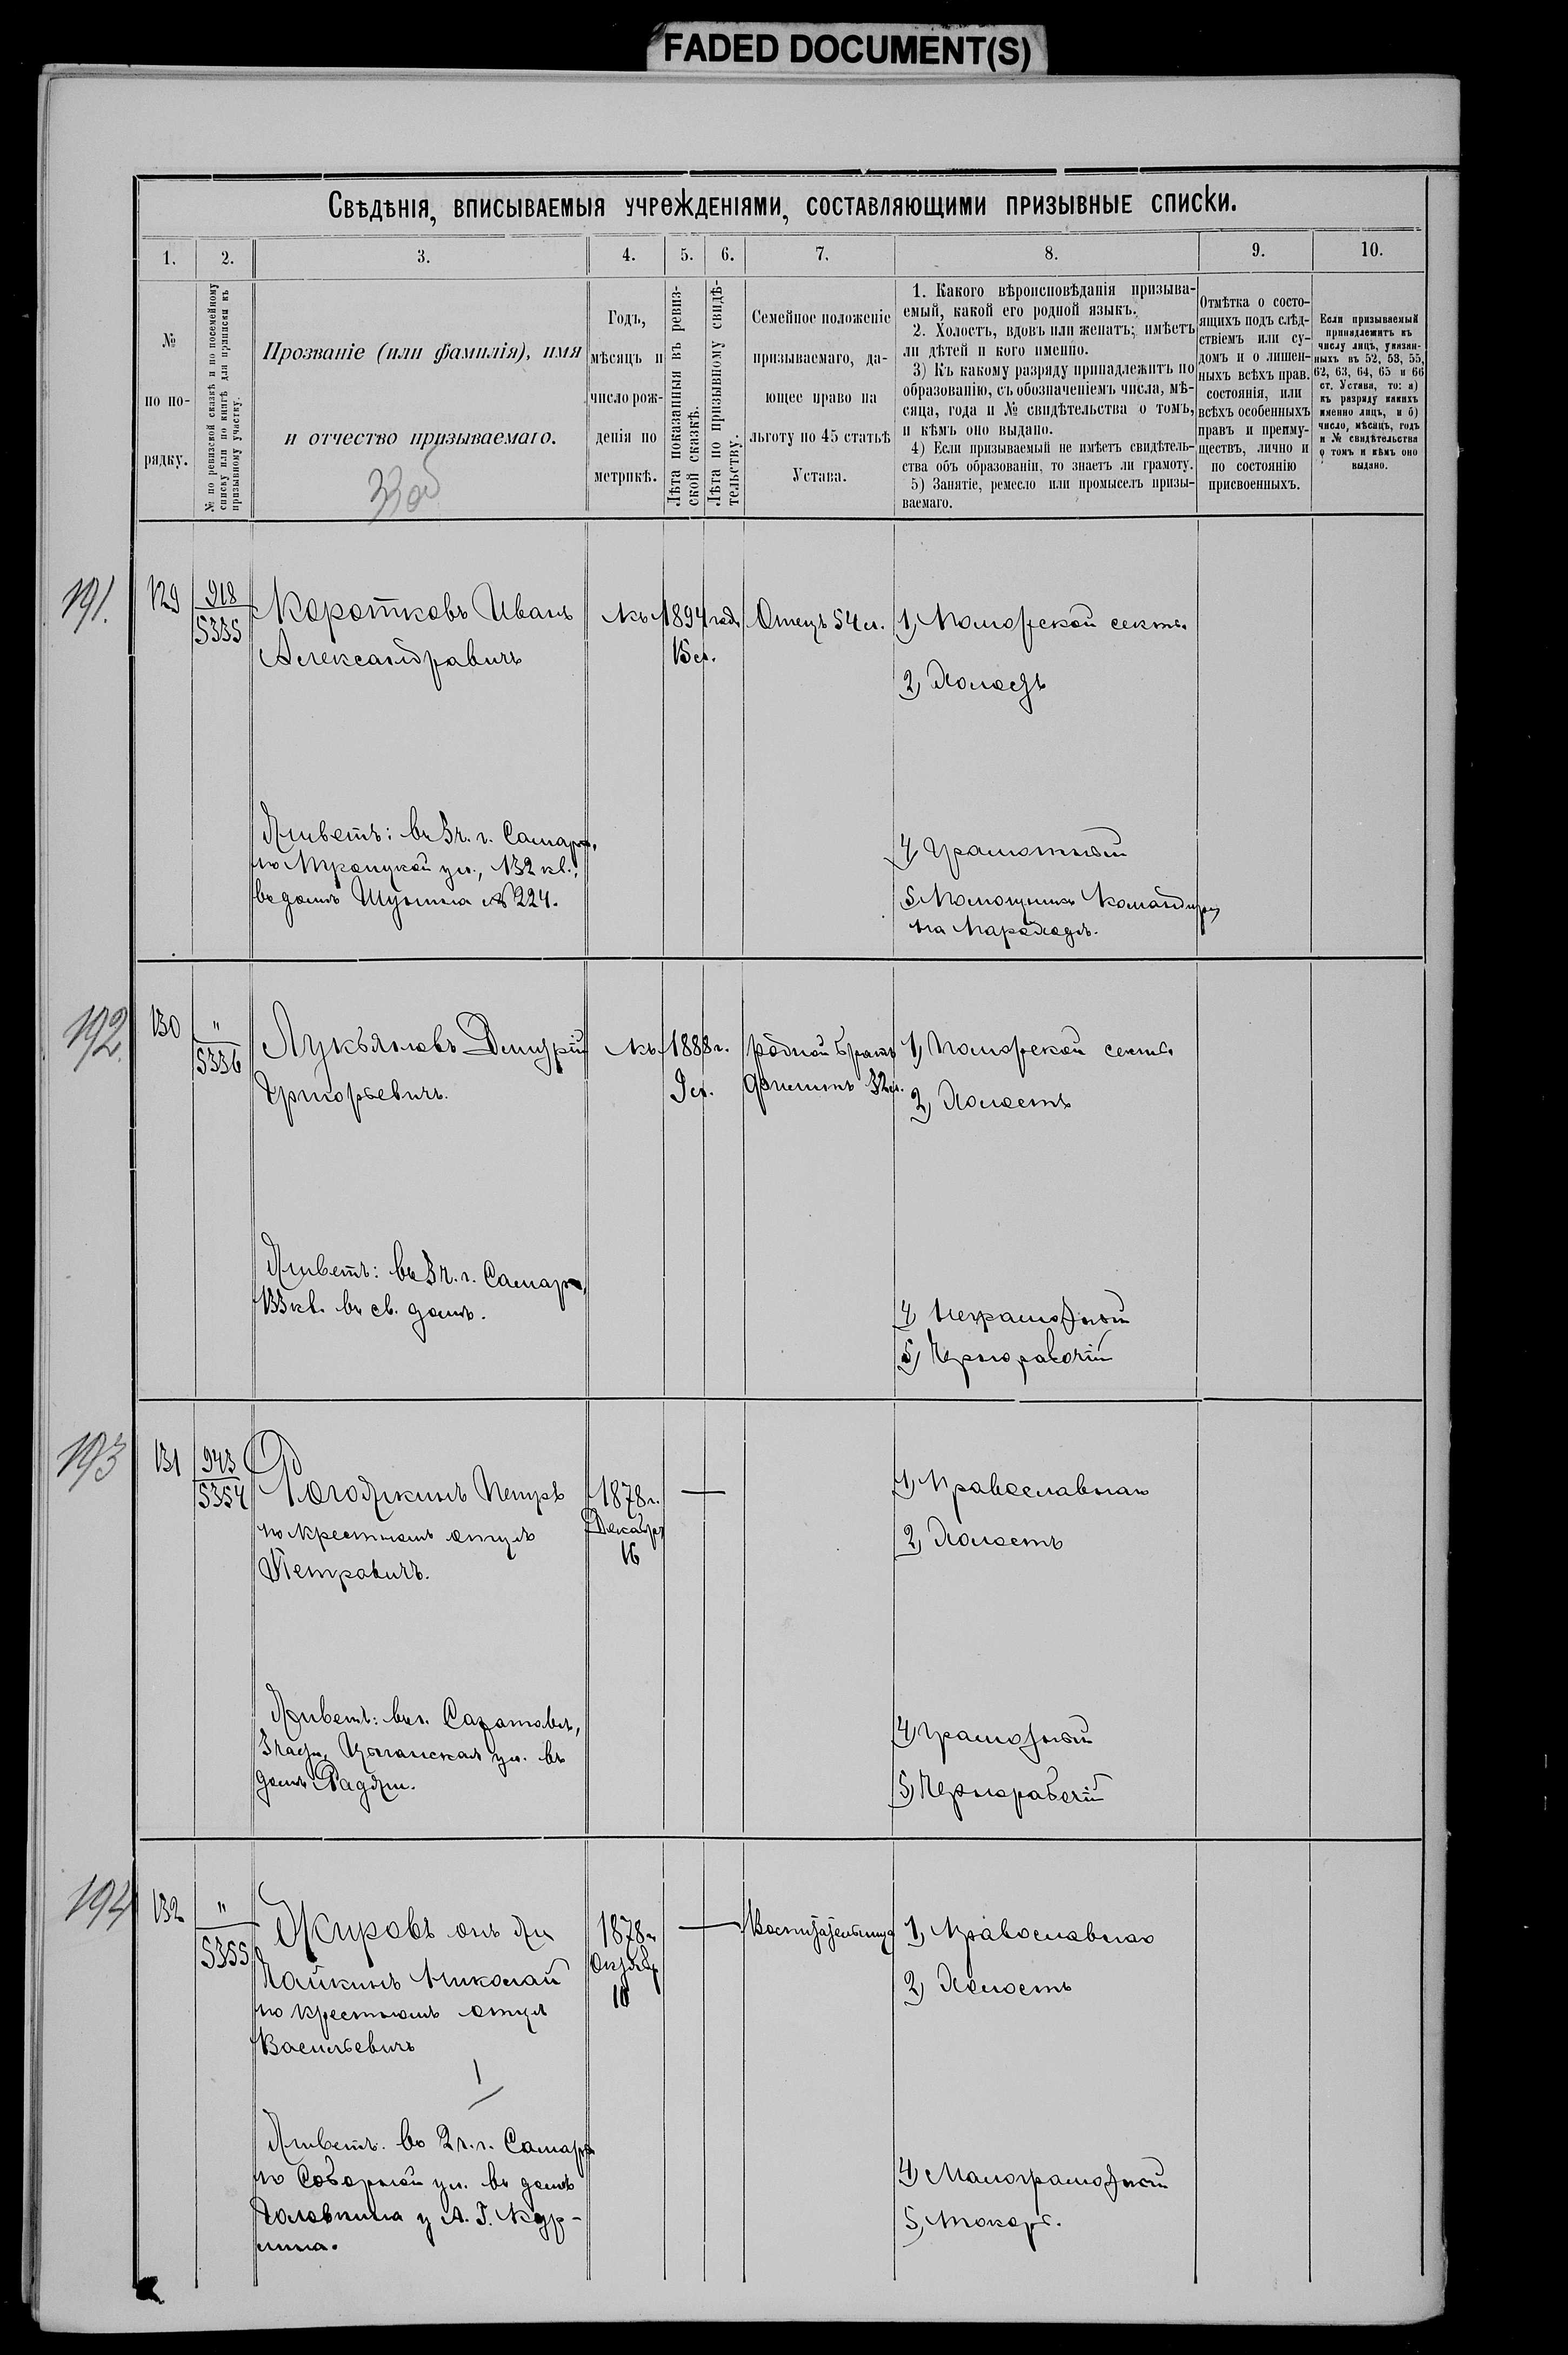 FADED DOCUMENT(S)
Свѣдѣнія, вписываемыя учрежденіями, составляющими призывные списки.
1. 2. 3. 4. 5. 6. 7. 8. 9. 10.
№ по по-
рядку.
№ по ревизской сказкѣ и по посемейному
списку или по книгѣ для приписки къ
призывному участку.
Прозваніе (или фамилія), имя
и отчество призываемаго.
Годъ,
мѣсяцъ и
число рож-
денія по
метрикѣ.
Лѣта показанныя въ ревиз-
ской сказкѣ.
Лѣта по призывному свидѣ-
тельству.
Семейное положеніе
призываемаго, да-
ющее право на
льготу по 45 статьѣ
Устава.
1. Какого вѣроисповѣданія призыва-
емый, какой его родной языкъ.
2. Холостъ, вдовъ или женатъ; имѣетъ
ли дѣтей и кого именно.
3) Къ какому разряду принадлежитъ по
образованію, съ обозначеніемъ числа, мѣ-
сяца, года и № свидѣтельства о томъ,
и кѣмъ оно выдано.
4) Если призываемый не имѣетъ свидѣтель-
ства объ образованіи, то знаетъ ли грамоту.
5) Занятіе, ремесло или промыселъ призы-
ваемаго.
Отмѣтка о состо-
ящихъ подъ слѣд-
ствіемъ или су-
домъ и о лишен-
ныхъ всѣхъ прав.
состоянія, или
всѣхъ особенныхъ
правъ и преиму-
ществъ, лично и
по состоянію
присвоенныхъ.
Если призываемый
принадлежитъ къ
числу лицъ, указан-
ныхъ въ 52, 53, 55,
62, 63, 64, 65 и 66
ст. Устава, то: а)
къ разряду какихъ
именно лицъ, и б)
число, мѣсяцъ, годъ
и № свидѣтельства
о томъ и кѣмъ оно
выдано.
191.
129
918
5335
Коротковъ Иванъ
Александровичъ
Къ 1894 году
15 л.
Отецъ 54 л.
1) Поморской секты.
2) Холостъ
Живетъ: въ 3 ч. г. Самары,
по Троицкой ул., 132 кв.,
въ домѣ Шушина № 224.
4) Грамотный
5) Помощникъ Командира
на пароходѣ.
192.
130
"
5336
Лукьяновъ Дмитрій
Григорьевичъ.
Къ 1888 г.
9 л.
родной братъ
Филиппъ 32 л.
1) Поморской секты.
2) Холостъ
Живетъ: въ 3 ч. г. Самары,
133 кв. въ св. домѣ.
4) Неграмотный
5) Чернорабочій
193
131
943
5354
Рогожкинъ Петръ
по крестному отцу
Петровичъ.
1878 г.
Декабря
16
1) Православнаго
2) Холостъ
Живетъ: въ г. Саратовѣ,
3 части, Цыганская ул. въ
домѣ Радзи.
4) Грамотный
5) Чернорабочій
194
132
"
5355
Жировъ онъ же
Чайкинъ Николай
по крестному отцу
Васильевичъ
1878 г.
Октября
10
Воспитательница
1) Православнаго
2) Холостъ
Живетъ. во 2 ч. г. Самары
по Соборной ул. въ домѣ
Головкина у А. Г. Кур-
лина.
4) Малограмотный
5) Токарь.